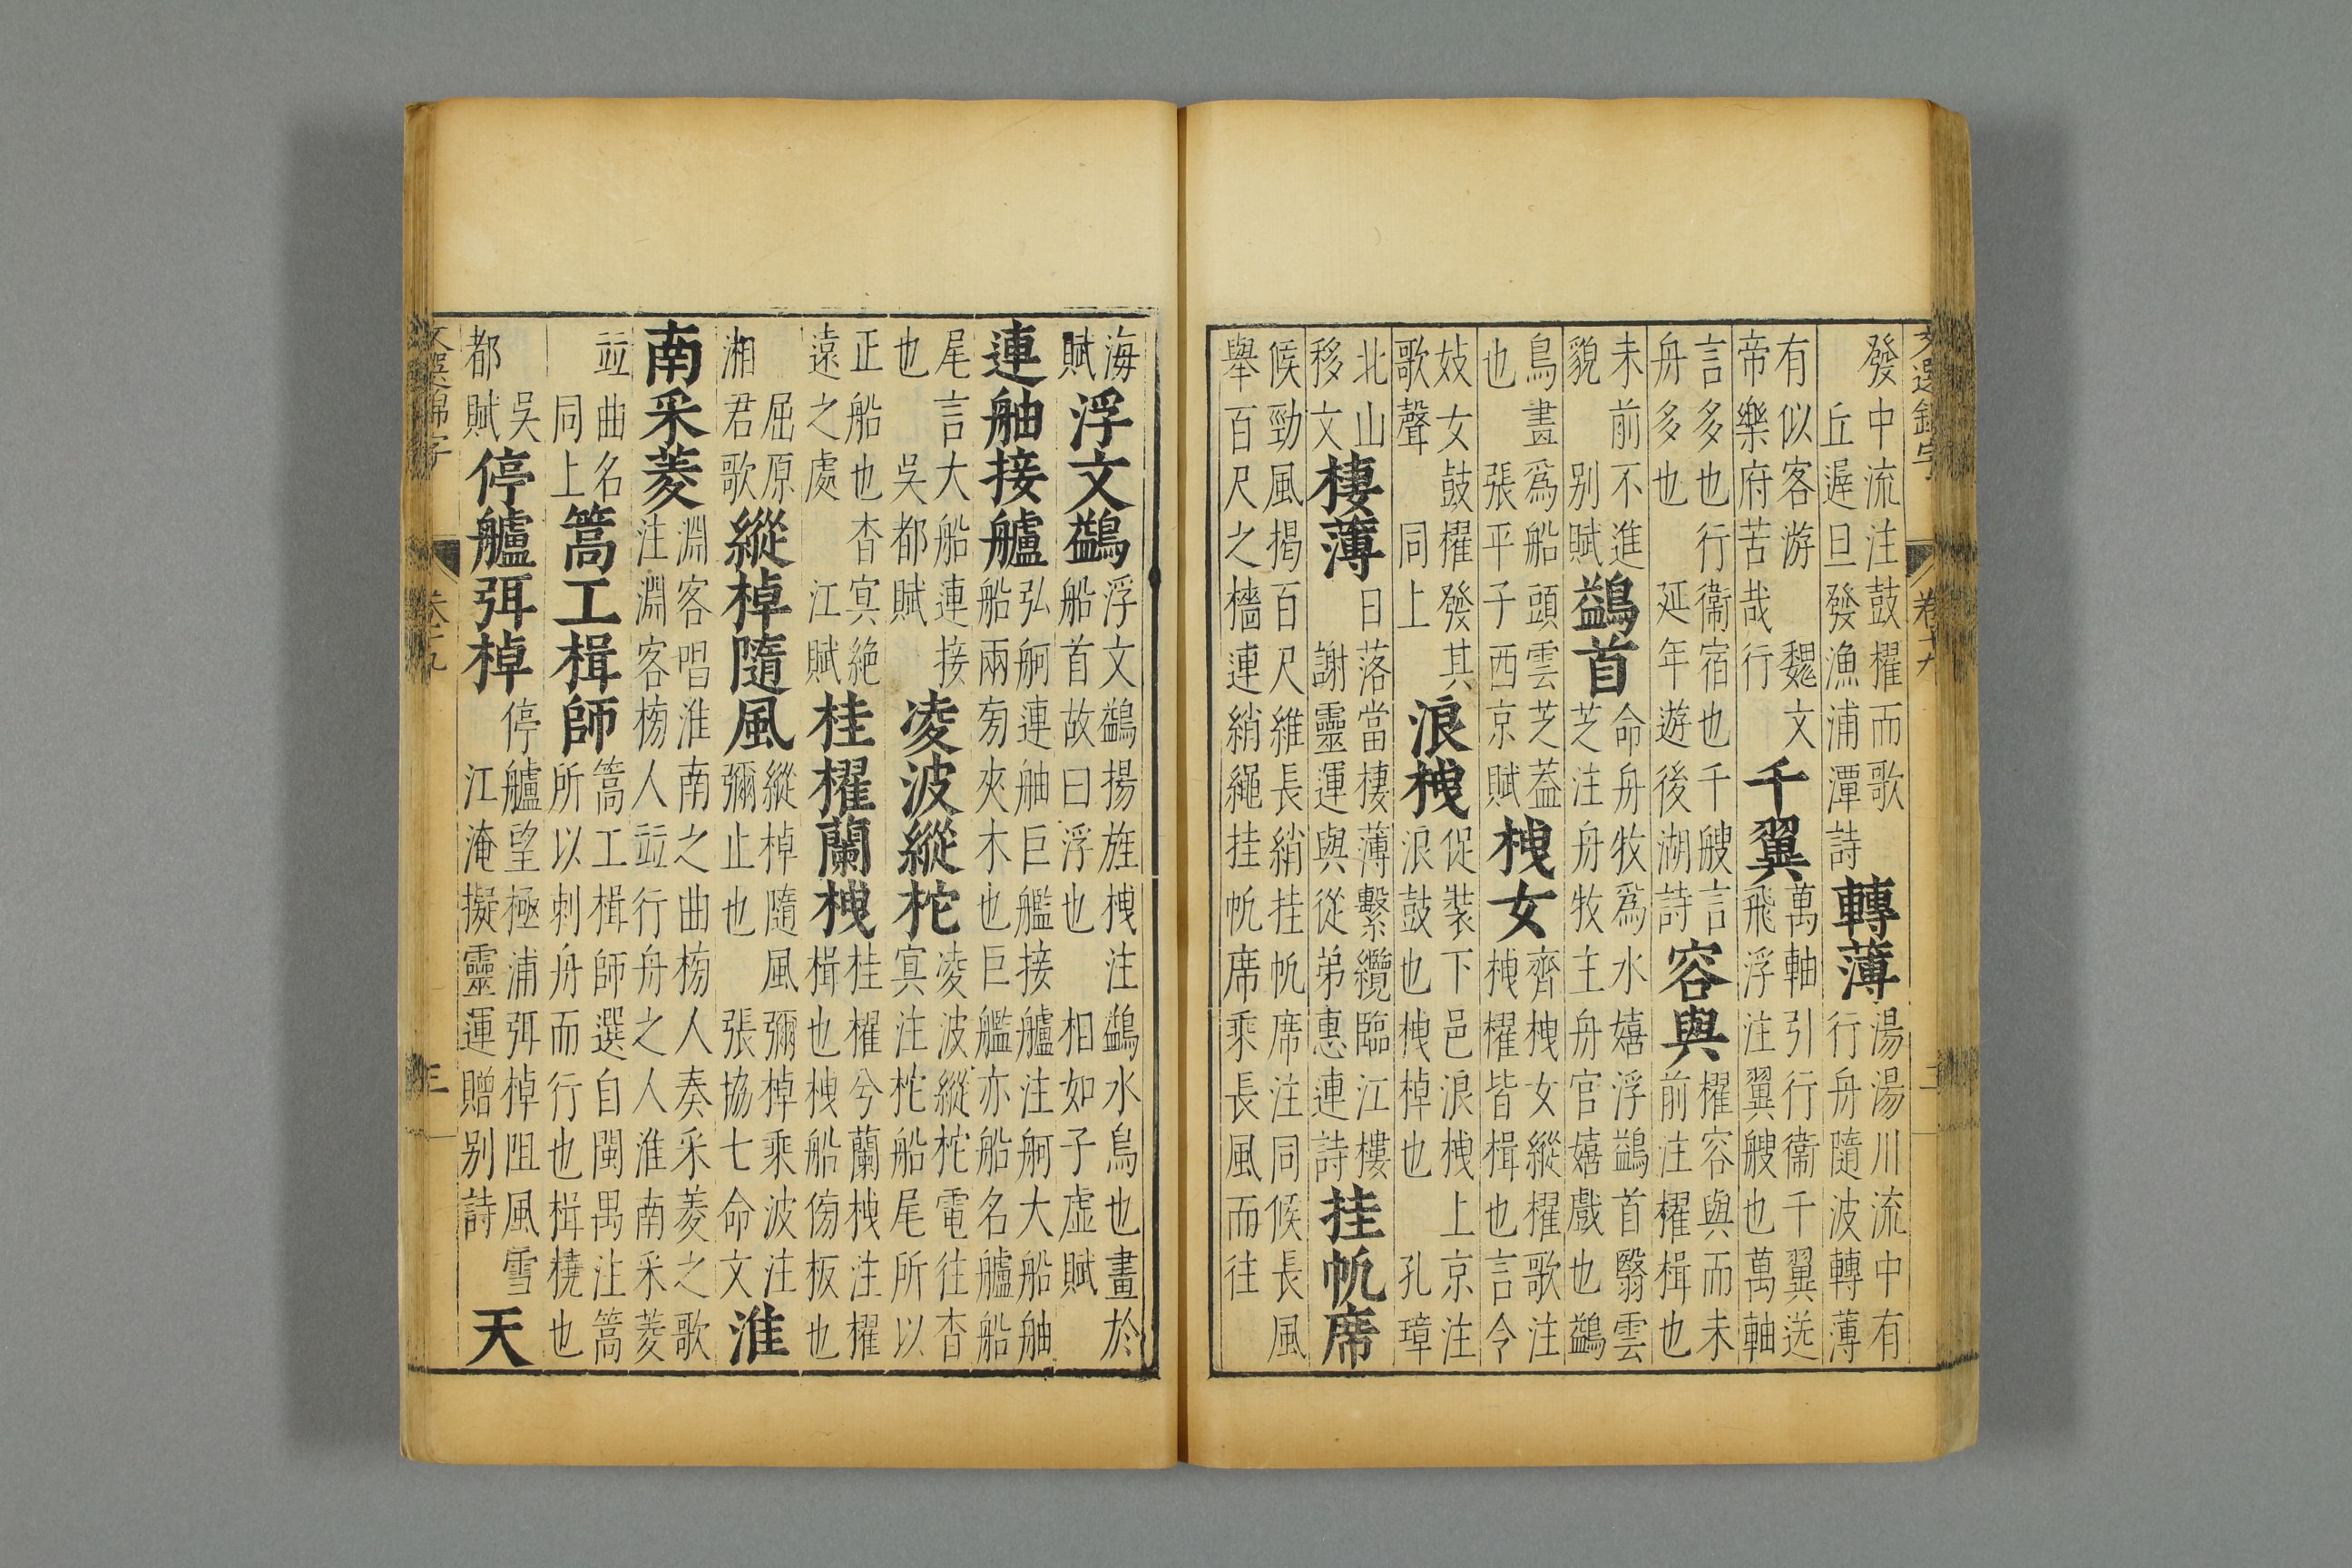 文選錦字
卷十九
二
發中流注鼓櫂而歌
丘遲旦發漁浦潭詩
轉薄
湯湯川流中有
行舟隨波轉薄
有似客游
帝樂府苦哉行
魏文
千翼
萬軸引行衞千翼送
飛浮注翼艘也萬軸
言多也行衞宿也千艘言
舟多也
延年遊後湖詩
容與
櫂容與而未
前注櫂楫也
未前不進
貌
别賦
鷁首
命舟牧爲水嬉浮鷁首翳雲
芝注舟牧主舟官嬉戲也鷁
鳥畫爲船頭雲芝蓋
也
張平子西京賦
栧女
齊栧女縱櫂歌注
栧櫂皆楫也言令
妓女鼓櫂發其
歌聲
同上
浪栧
促裝下邑浪栧上京注
浪鼓也栧棹也
孔璋
北山
移文
棲薄
日落當棲薄繫纜臨江樓
謝靈運與從弟惠連詩
挂帆席
候勁風揭百尺維長綃挂帆席注同候長風
舉百尺之檣連綃繩挂帆席乘長風而往
海
賦
浮文鷁
浮文鷁揚旌栧注鷁水鳥也畫於
船首故曰浮也
相如子虛賦
連舳接艫
弘舸連舳巨艦接艫注舸大船舳
船兩旁夾木也巨艦亦船名艫船
尾言大船連接
也
吳都賦
凌波縱柁
凌波縱柁電往杳
冥注柁船尾所以
正船也杳冥絶
遠之處
江賦
桂櫂蘭栧
桂櫂兮蘭栧注櫂
楫也栧船傍板也
屈原
湘君歌
縱棹隨風
縱棹隨風彌棹乘波注
彌止也
張協七命文
淮
南采菱
淵客唱淮南之曲榜人奏采菱之歌
注淵客榜人竝行舟之人淮南采菱
竝曲名
同上
篙工楫師
篙工楫師選自閩禺注篙
所以刺舟而行也楫橈也
吳
都賦
停艫弭棹
停艫望極浦弭棹阻風雪
江淹擬靈運贈別詩
天
文選錦字
卷十九
三